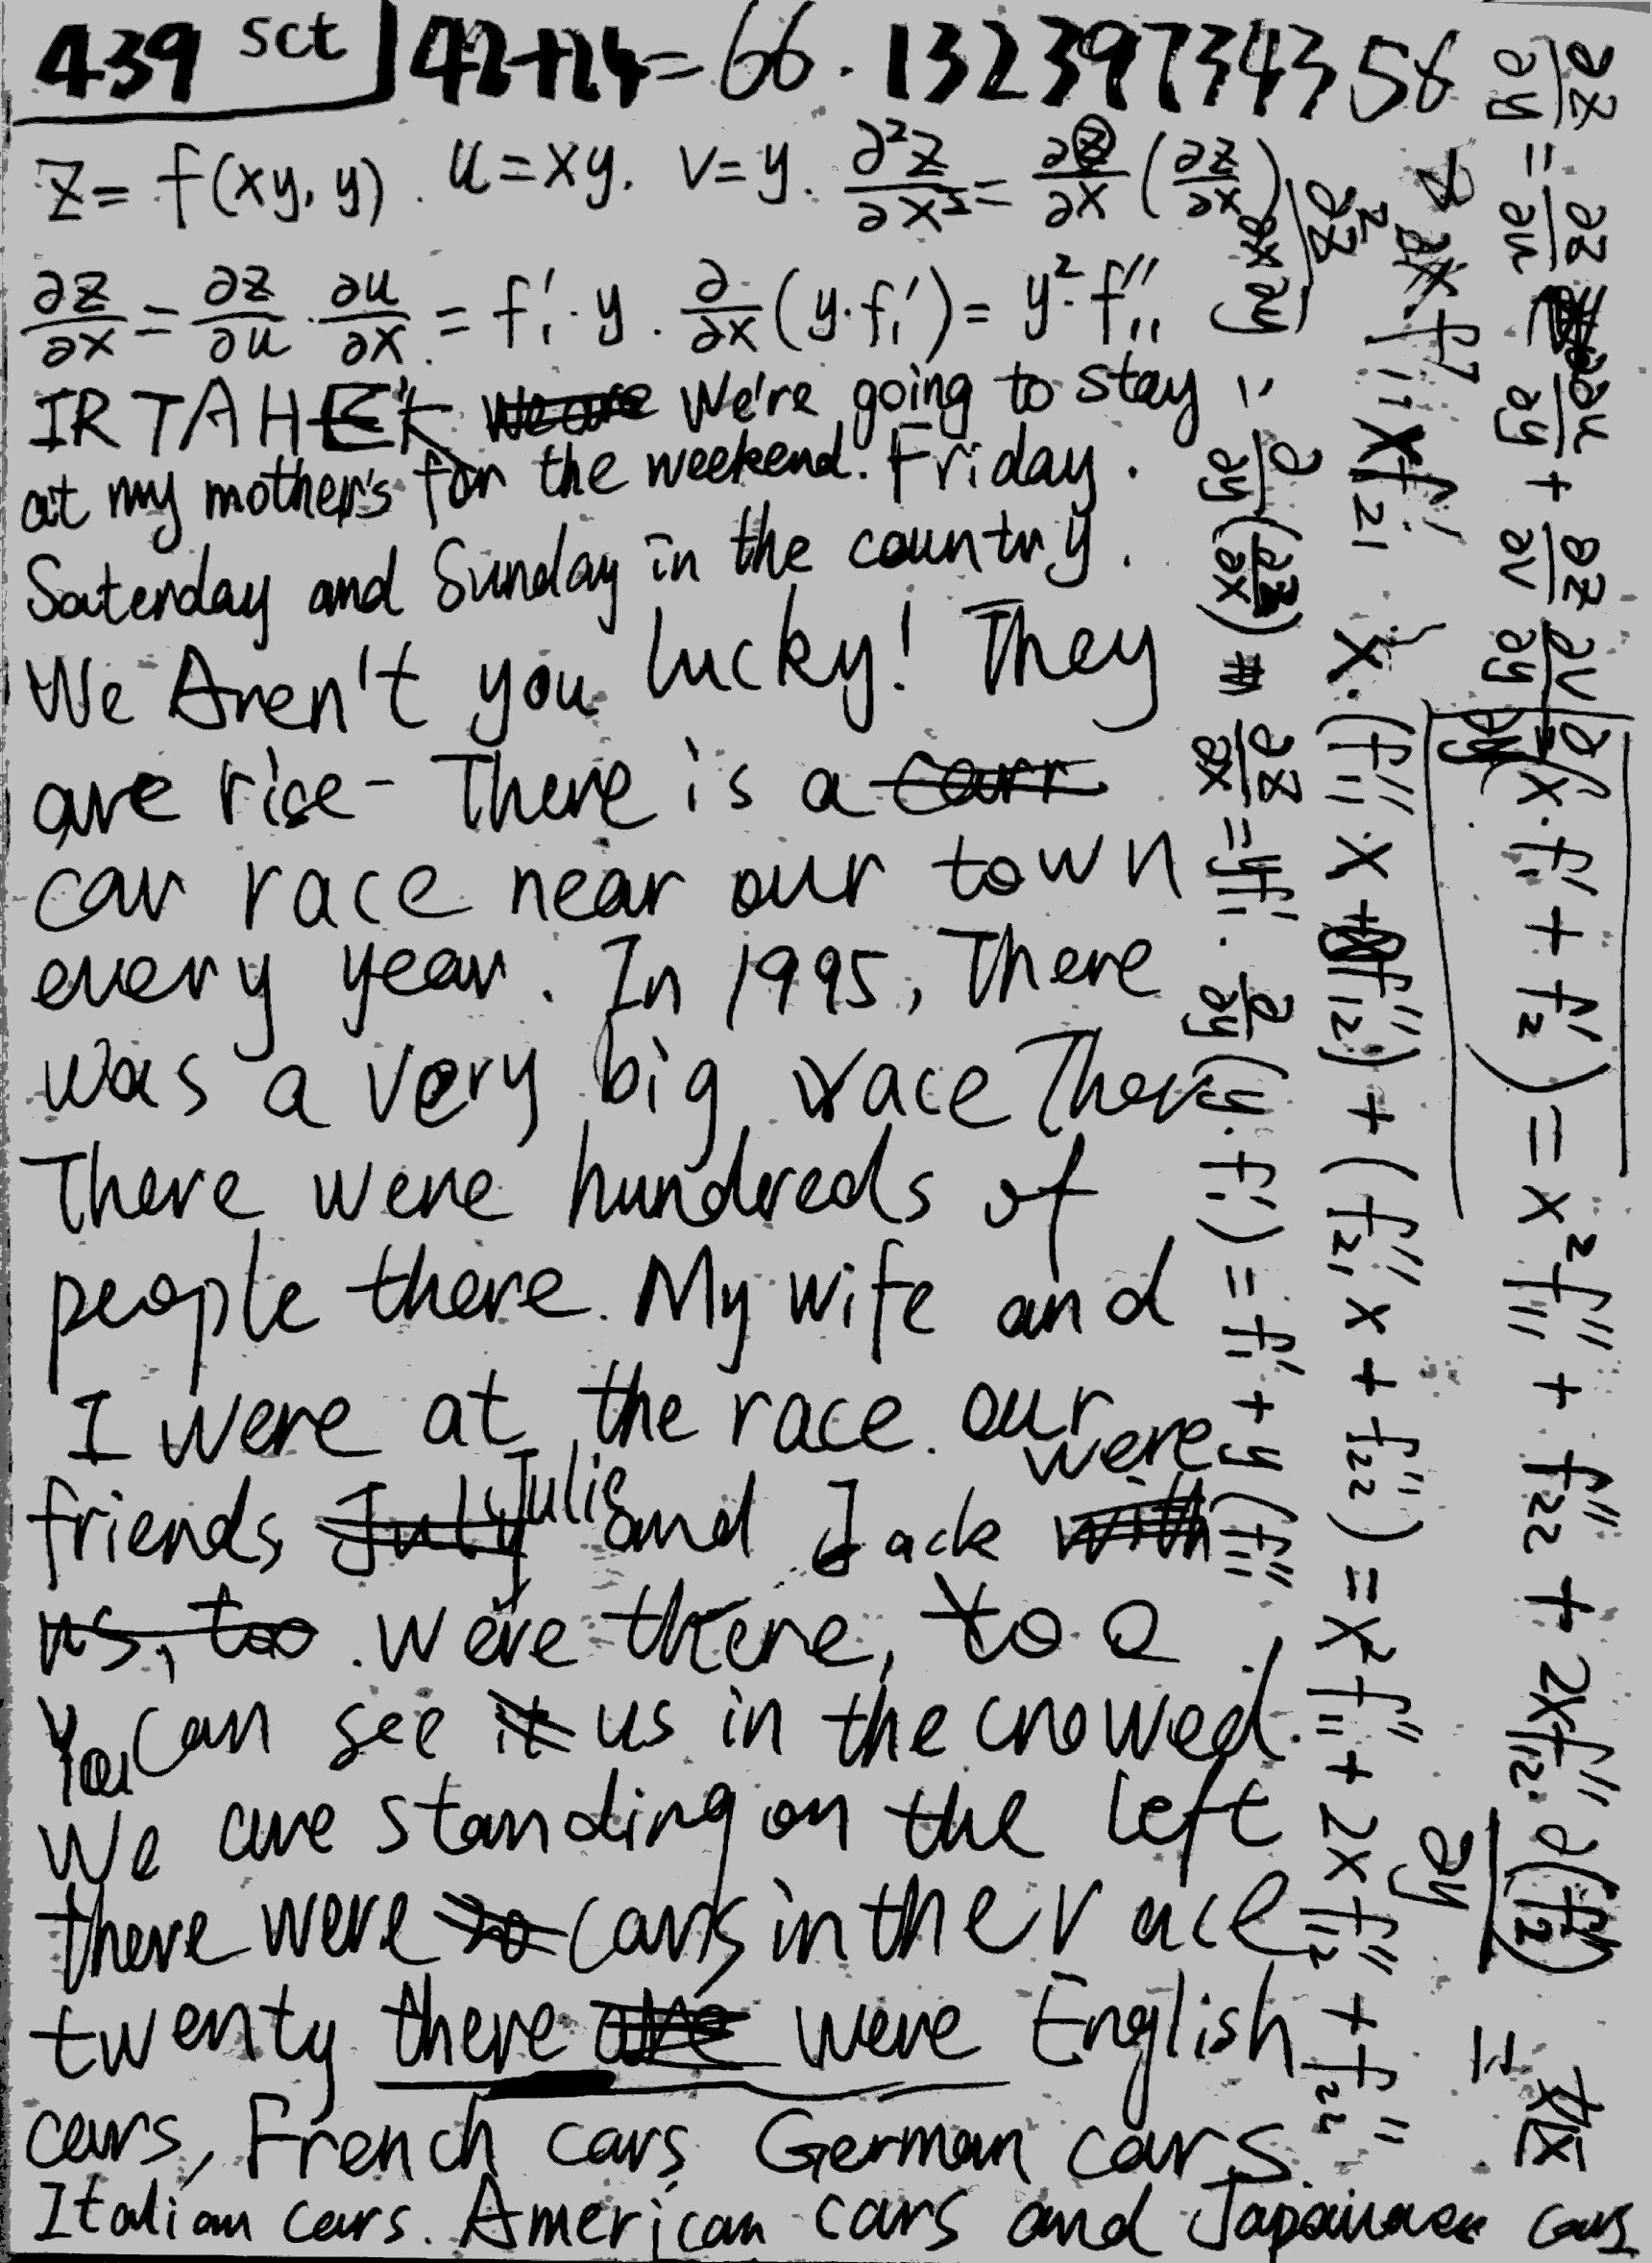 439 sct 42+24=66.13239734358
Z = f(xy, y). u = xy. v = y. ∂²z/∂x² = ∂/∂x (∂z/∂x)
∂z/∂x = ∂z/∂u · ∂u/∂x = f₁′·y. ∂/∂x (y·f₁′) = y²·f₁₁″
IRTAHEK We're going to stay
at my mother's for the weekend. Friday.
Saterday and Sunday in the country.
We Aren't you lucky! They
are rise- There is a carr
car race near our town
every year. In 1995, There
was a very big race Ther
There were hundreds of
people there. My wife and
I were at the race. our
friends July Julie and Jack with were
us, too. were there, too
You can see it us in the crowed.
We are standing on the left
there were 20 cars in the race
twenty there are were English
cars, French cars German cars.
Italian cars. American cars and cars
∂²z/∂x∂y = ∂/∂y(∂z/∂x) ∂z/∂x = yf₁′. ∂/∂y(y·f₁′) = f₁′ + y(f₁₁″
x·(f₁₁″·x + f₁₂″) + (f₂₁″x + f₂₂″) = x²f₁₁″ + 2xf₁₂″ + f₂₂″
∂z/∂y = ∂z/∂u ∂u/∂y + ∂z/∂v ∂v/∂y
∂/∂y(x·f₁′ + f₂′) = x²f₁₁″ + f₂₂″ + 2xf₁₂″. ∂(f₂′)/∂y =